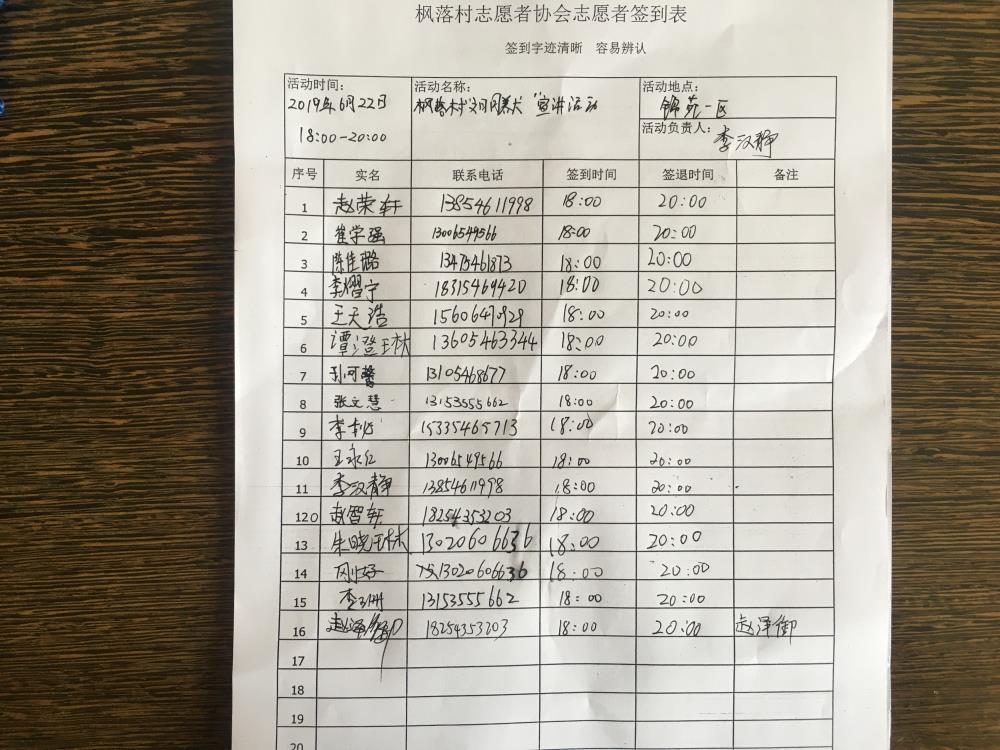 枫落村志愿者协会志愿者签到表
签到字迹清晰 容易辨认
活动时间: 活动名称: 活动地点:
2019年6月22日 枫落村 宣讲活动 锦苑一区
18:00-20:00 活动负责人: 李汉静
序号 实名 联系电话 签到时间 签退时间 备注
1 赵荣轩 13854611998 18:00 20:00
2 崔学强 13006549566 18:00 20:00
3 陈佳璐 13475461873 18:00 20:00
4 李熠宁 18315469420 18:00 20:00
5 王天浩 15606470929 18:00 20:00
6 谭澄琳 13605463344 18:00 20:00
7 孙可馨 13105468677 18:00 20:00
8 张文慧 13153555662 18:00 20:00
9 李 15335465713 18:00 20:00
10 王永红 13006549566 18:00 20:00
11 李汉静 13854611998 18:00 20:00
120 赵智轩 18254353203 18:00 20:00
13 朱晓琳 13020606636 18:00 20:00
14 刚好 13020606636 18:00 20:00
15 13153555662 18:00 20:00
16 赵泽御 18254353203 18:00 20:00 赵泽御
17
18
19
20